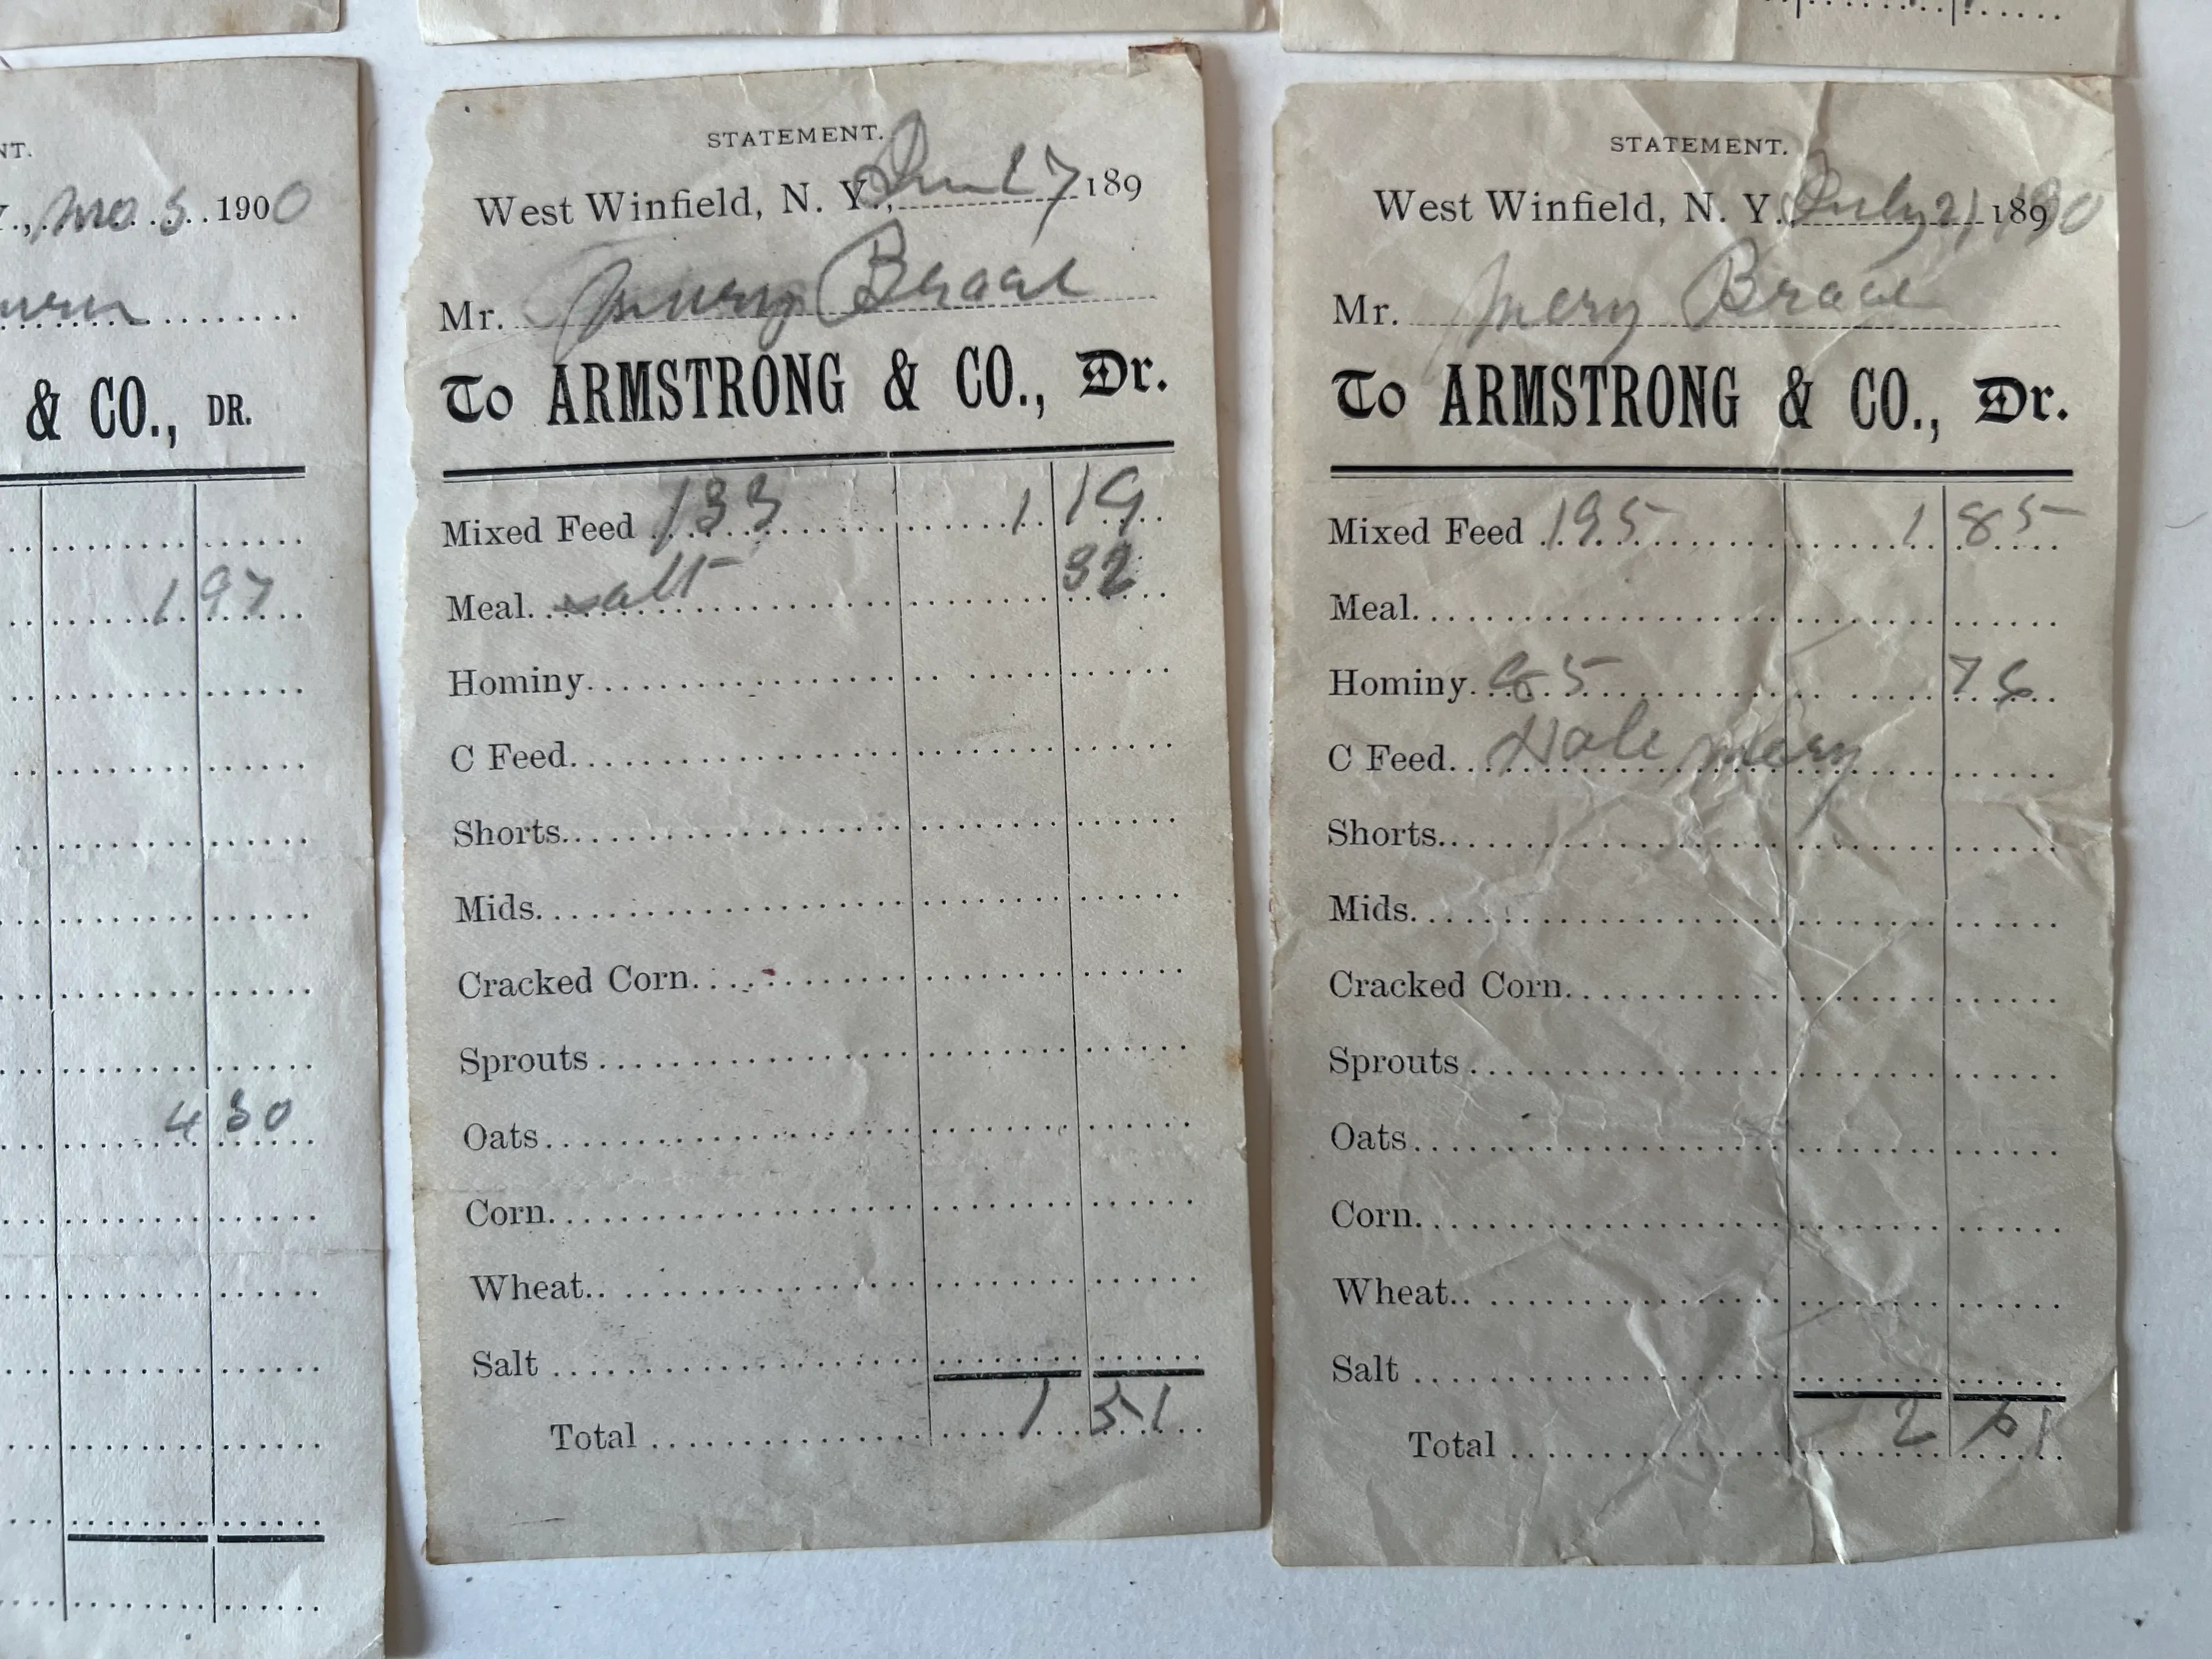 NT.
Y., 5 1900
& CO., DR.
1 97
4 30
STATEMENT.
West Winfield, N. Y., 7 189
Mr. Brace
To ARMSTRONG & CO., Dr.
Mixed Feed 133 1 19
Meal. salt 32
Hominy
C Feed
Shorts
Mids.
Cracked Corn
Sprouts
Oats
Corn
Wheat
Salt
Total 1 51
STATEMENT.
West Winfield, N. Y. July 21, 189 190
Mr. Mery Brace
To ARMSTRONG & CO., Dr.
Mixed Feed 195 1 85
Meal.
Hominy 85 76
C Feed. Mery
Shorts
Mids.
Cracked Corn
Sprouts
Oats
Corn
Wheat
Salt
Total 2 61